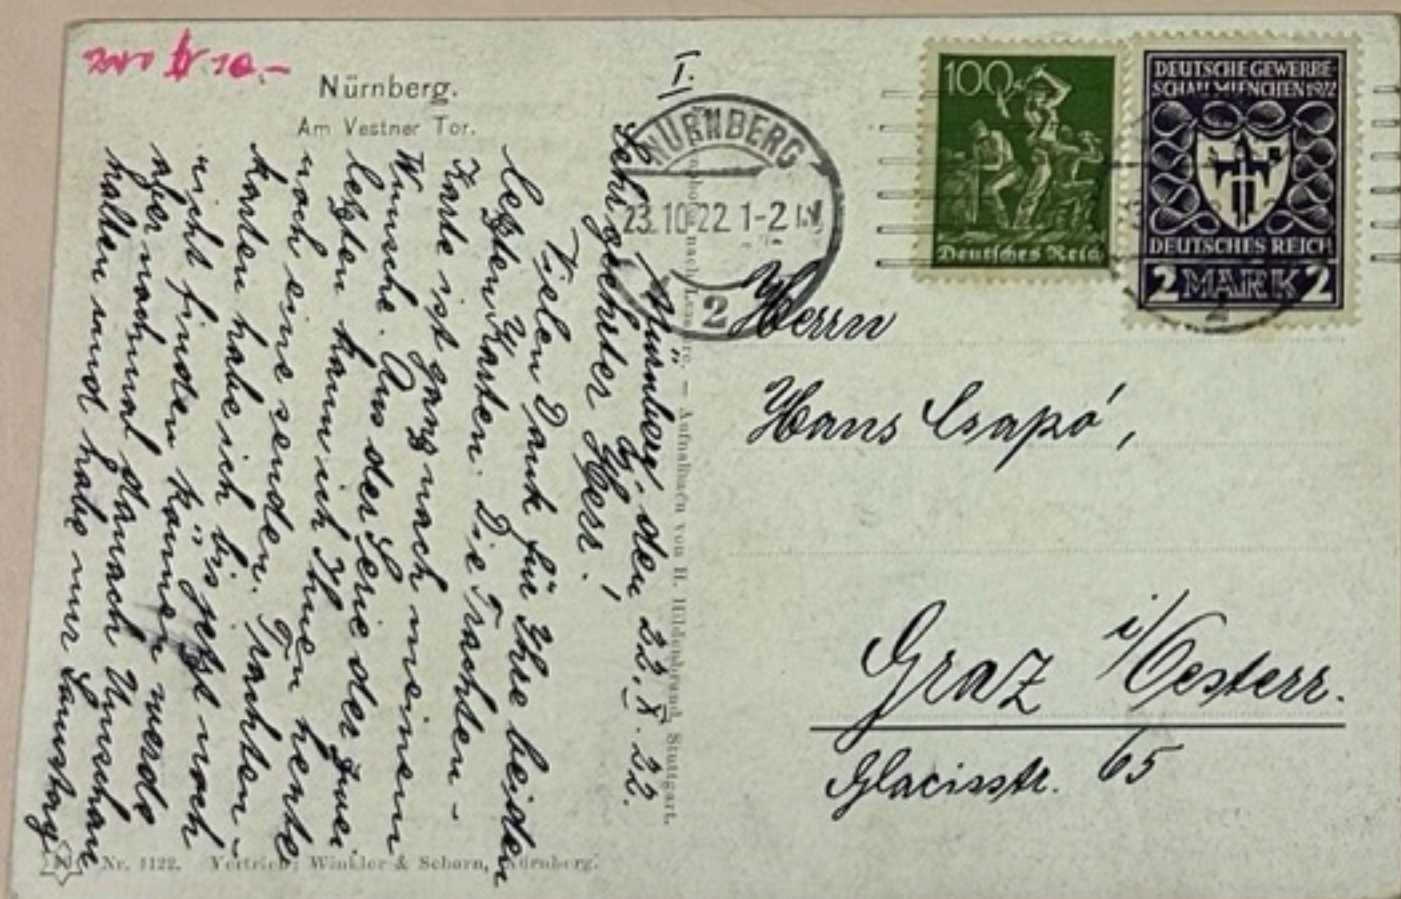 10.-
Nürnberg.
Am Vestner Tor.
I.
NÜRNBERG
23.10.22 1-2 N.
2
100
Deutsches Reich
DEUTSCHE GEWERBE-
SCHAU MUENCHEN 1922
DEUTSCHES REICH
2 MARK 2
Nürnberg, den 22.X.22.
Sehr geehrter Herr!
Vielen Dank für Ihre beiden
letzten Karten. Die Trachten-
karte ist ganz nach meinem
Wunsche. Aus der Serie der
letzten kann ich Ihnen heute
noch eine senden. Trachten-
karten habe ich bis jetzt noch
nicht finden können werde
aber nochmal danach Umschau
halten und habe nur Samstag
Aufnahmen von H. Hildenbrand, Stuttgart.
Herrn
Hans Csapó,
Graz i/Oesterr.
Glacisstr. 65
Nr. 1122. Vertrieb: Winkler & Schorn, Nürnberg.